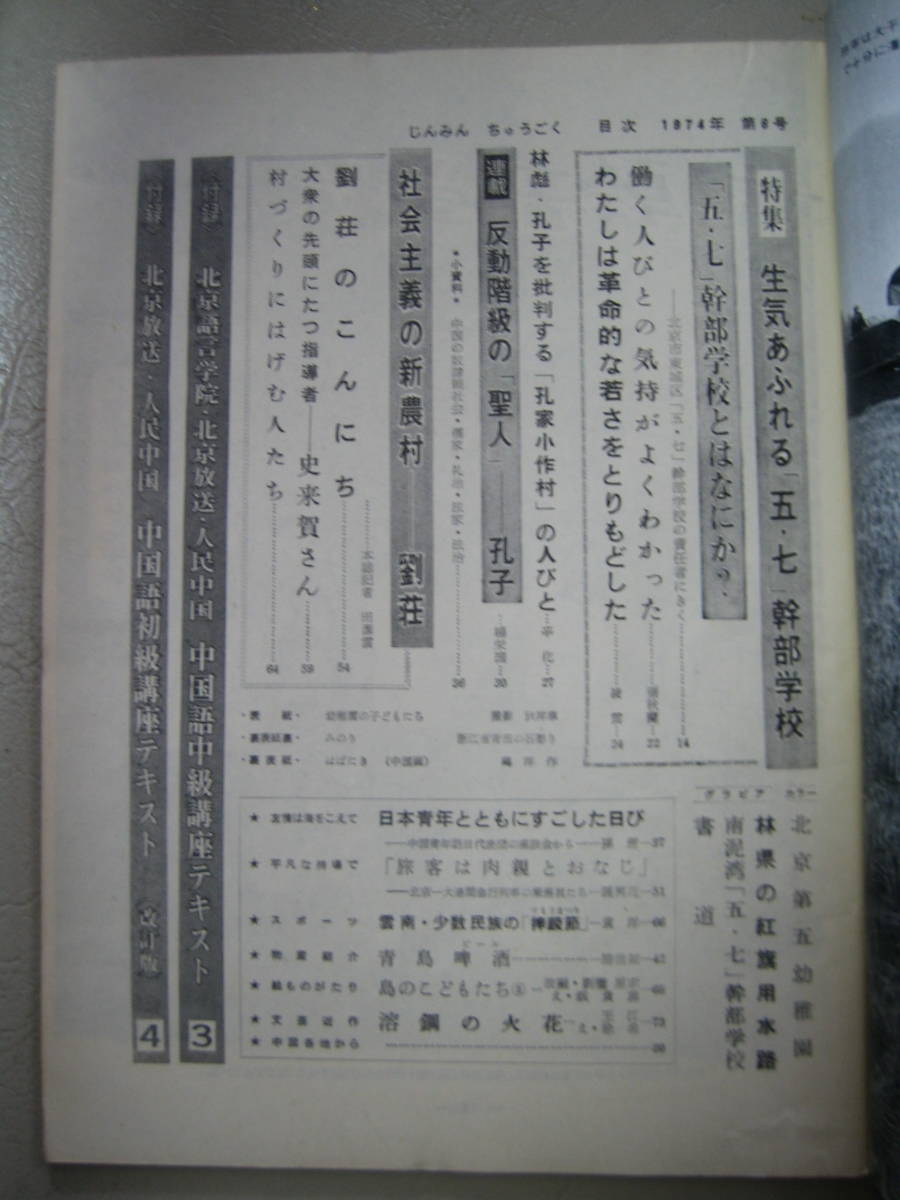 じんみん ちゅうごく 目次 1974年 第6号
特集 生気あふれる「五・七」幹部学校
「五・七」幹部学校とはなにか?
——北京市東城区「五・七」幹部学校の責任者にきく 14
働く人びとの気持がよくわかった 22
わたしは革命的な若さをとりもどした 24
林彪・孔子を批判する「孔家小作村」の人びと 27
連載 反動階級の「聖人」——孔子 30
★小資料★ 中国の奴隷制社会・儒家・礼治・法家・法治 36
社会主義の新農村——劉荘
本誌記者
劉荘のこんにち 54
大衆の先頭にたつ指導者——史来賀さん 59
村づくりにはげむ人たち 64
〈付録〉 北京語言学院・北京放送・人民中国 中国語中級講座テキスト 3
〈付録〉 北京放送・人民中国 中国語初級講座テキスト 改訂版 4
・表紙・ 幼稚園の子どもたち 撮影
・裏表紙裏・ みのり 浙江省青田の石彫り
・裏表紙・ はばたき (中国画) 作
グラビア カラー
北京第五幼稚園
林県の紅旗用水路
南泥湾「五・七」幹部学校
書道
★ 友情は海をこえて 日本青年とともにすごした日び
——中国青年訪日代表団の座談会から 37
★ 平凡な持場で 「旅客は肉親とおなじ」
——北京—大連間急行列車の乗務員たち 51
★ スポーツ 雲南・少数民族の 66
★ 物産紹介 青島啤酒 ビール 47
★ 絵ものがたり 島のこどもたち
★ 文芸近作 溶鋼の火花 73
★ 中国各地から